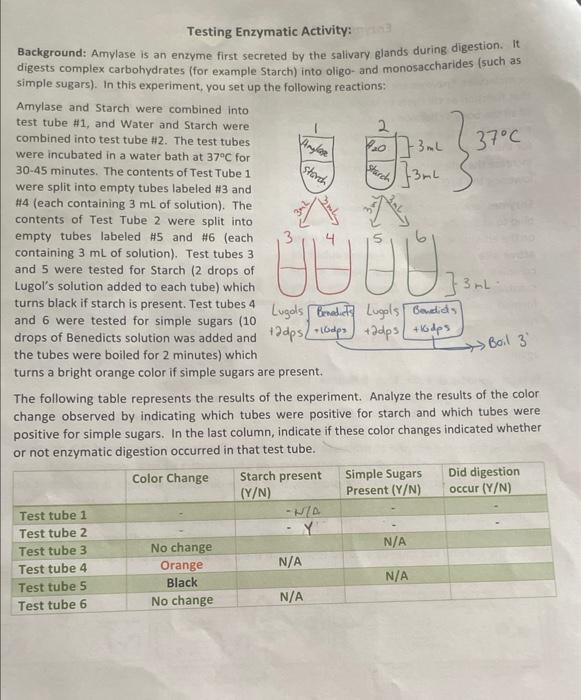 Testing Enzymatic Activity:
Background: Amylase is an enzyme first secreted by the salivary glands during digestion. It
digests complex carbohydrates (for example Starch) into oligo- and monosaccharides (such as
simple sugars). In this experiment, you set up the following reactions:
Amylase and Starch were combined into
test tube #1, and Water and Starch were
combined into test tube #2. The test tubes
were incubated in a water bath at 37°C for
30-45 minutes. The contents of Test Tube 1
were split into empty tubes labeled #3 and
#4 (each containing 3 mL of solution). The
contents of Test Tube 2 were split into
empty tubes labeled #5 and #6 (each
containing 3 mL of solution). Test tubes 3
and 5 were tested for Starch (2 drops of
Lugol's solution added to each tube) which
turns black if starch is present. Test tubes 4
and 6 were tested for simple sugars (10
drops of Benedicts solution was added and
the tubes were boiled for 2 minutes) which
turns a bright orange color if simple sugars are present.
1 2
Amylase H20 3mL 37°C
Starch Starch 3mL
3mL 3mL 3mL 3mL
3 4 5 6
3mL
Lugols Benedicts Lugols Benedicts
+2dps +10dps +2dps +10dps
Boil 3'
The following table represents the results of the experiment. Analyze the results of the color
change observed by indicating which tubes were positive for starch and which tubes were
positive for simple sugars. In the last column, indicate if these color changes indicated whether
or not enzymatic digestion occurred in that test tube.
Color Change Starch present (Y/N) Simple Sugars Present (Y/N) Did digestion occur (Y/N)
Test tube 1 - - N/A - -
Test tube 2 - - Y - -
Test tube 3 No change N/A
Test tube 4 Orange N/A
Test tube 5 Black N/A
Test tube 6 No change N/A